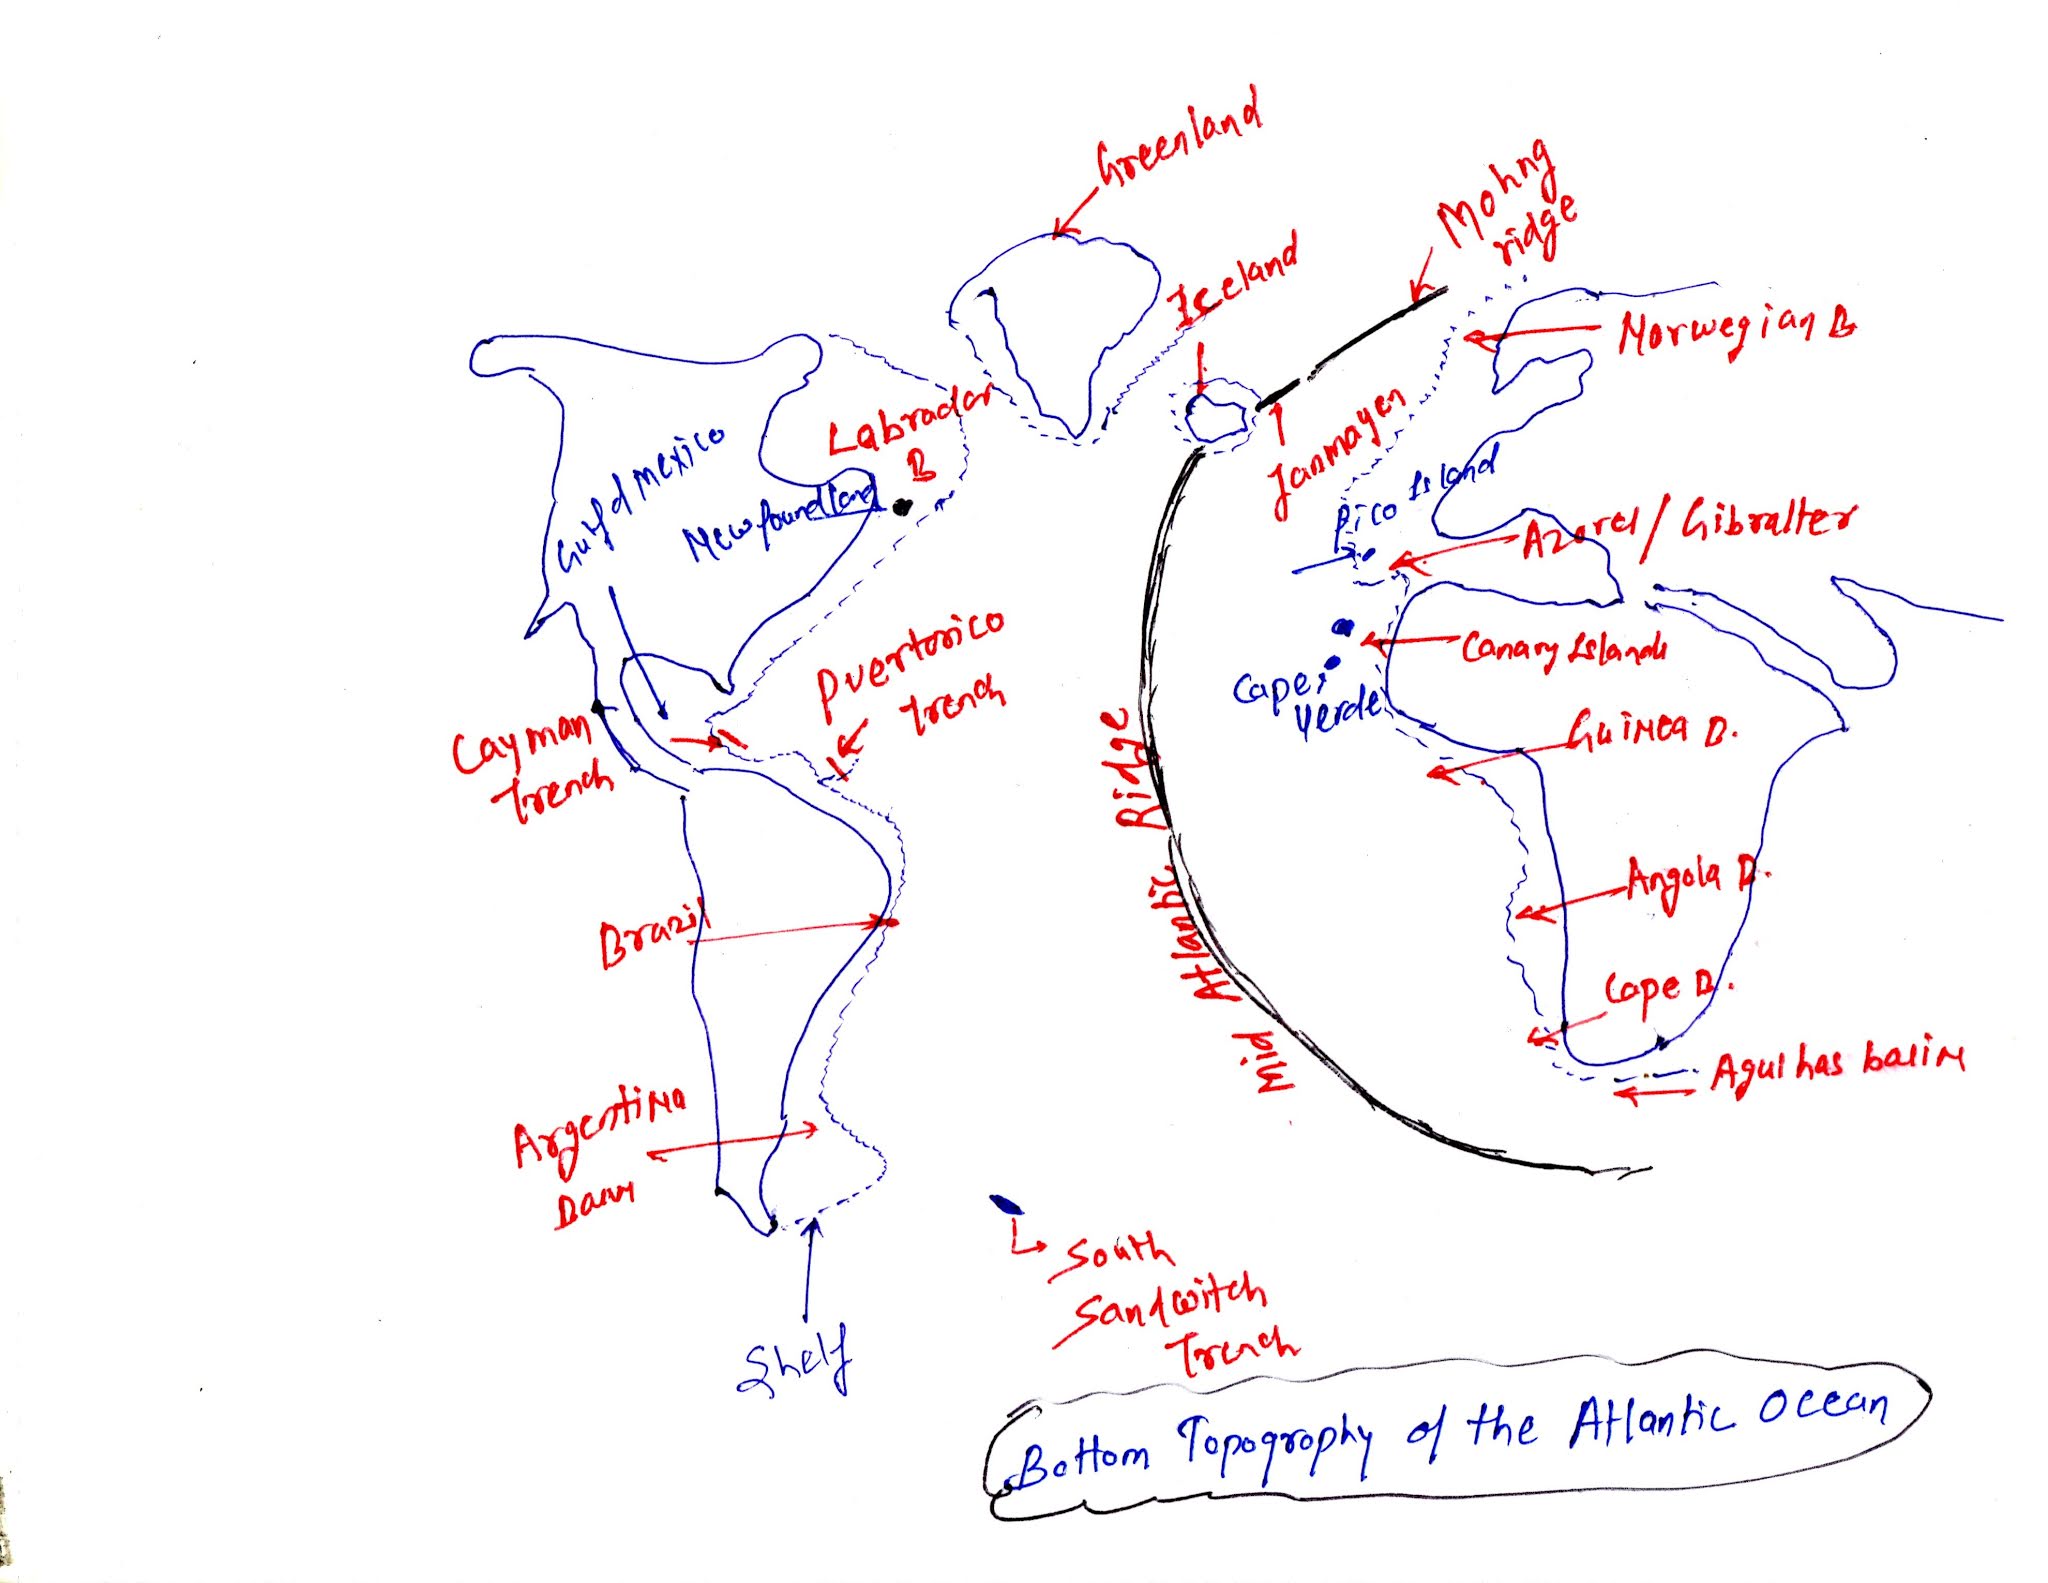 Greenland
Mohng
ridge
Iceland
Norwegian B
Labrador
B
Janmayen
Gulf of mexico
Newfoundland
Pico Island
Azores/Gibralter
Puertorico
Trench
Canary Islands
Cape
Verde
Cayman
Trench
Guinea B.
Mid Atlantic Ridge
Brazil
Angola B.
Cape B.
Agulhas basin
Argentina
Basin
South
Sandwitch
Trench
Shelf
Bottom Topography of the Atlantic Ocean